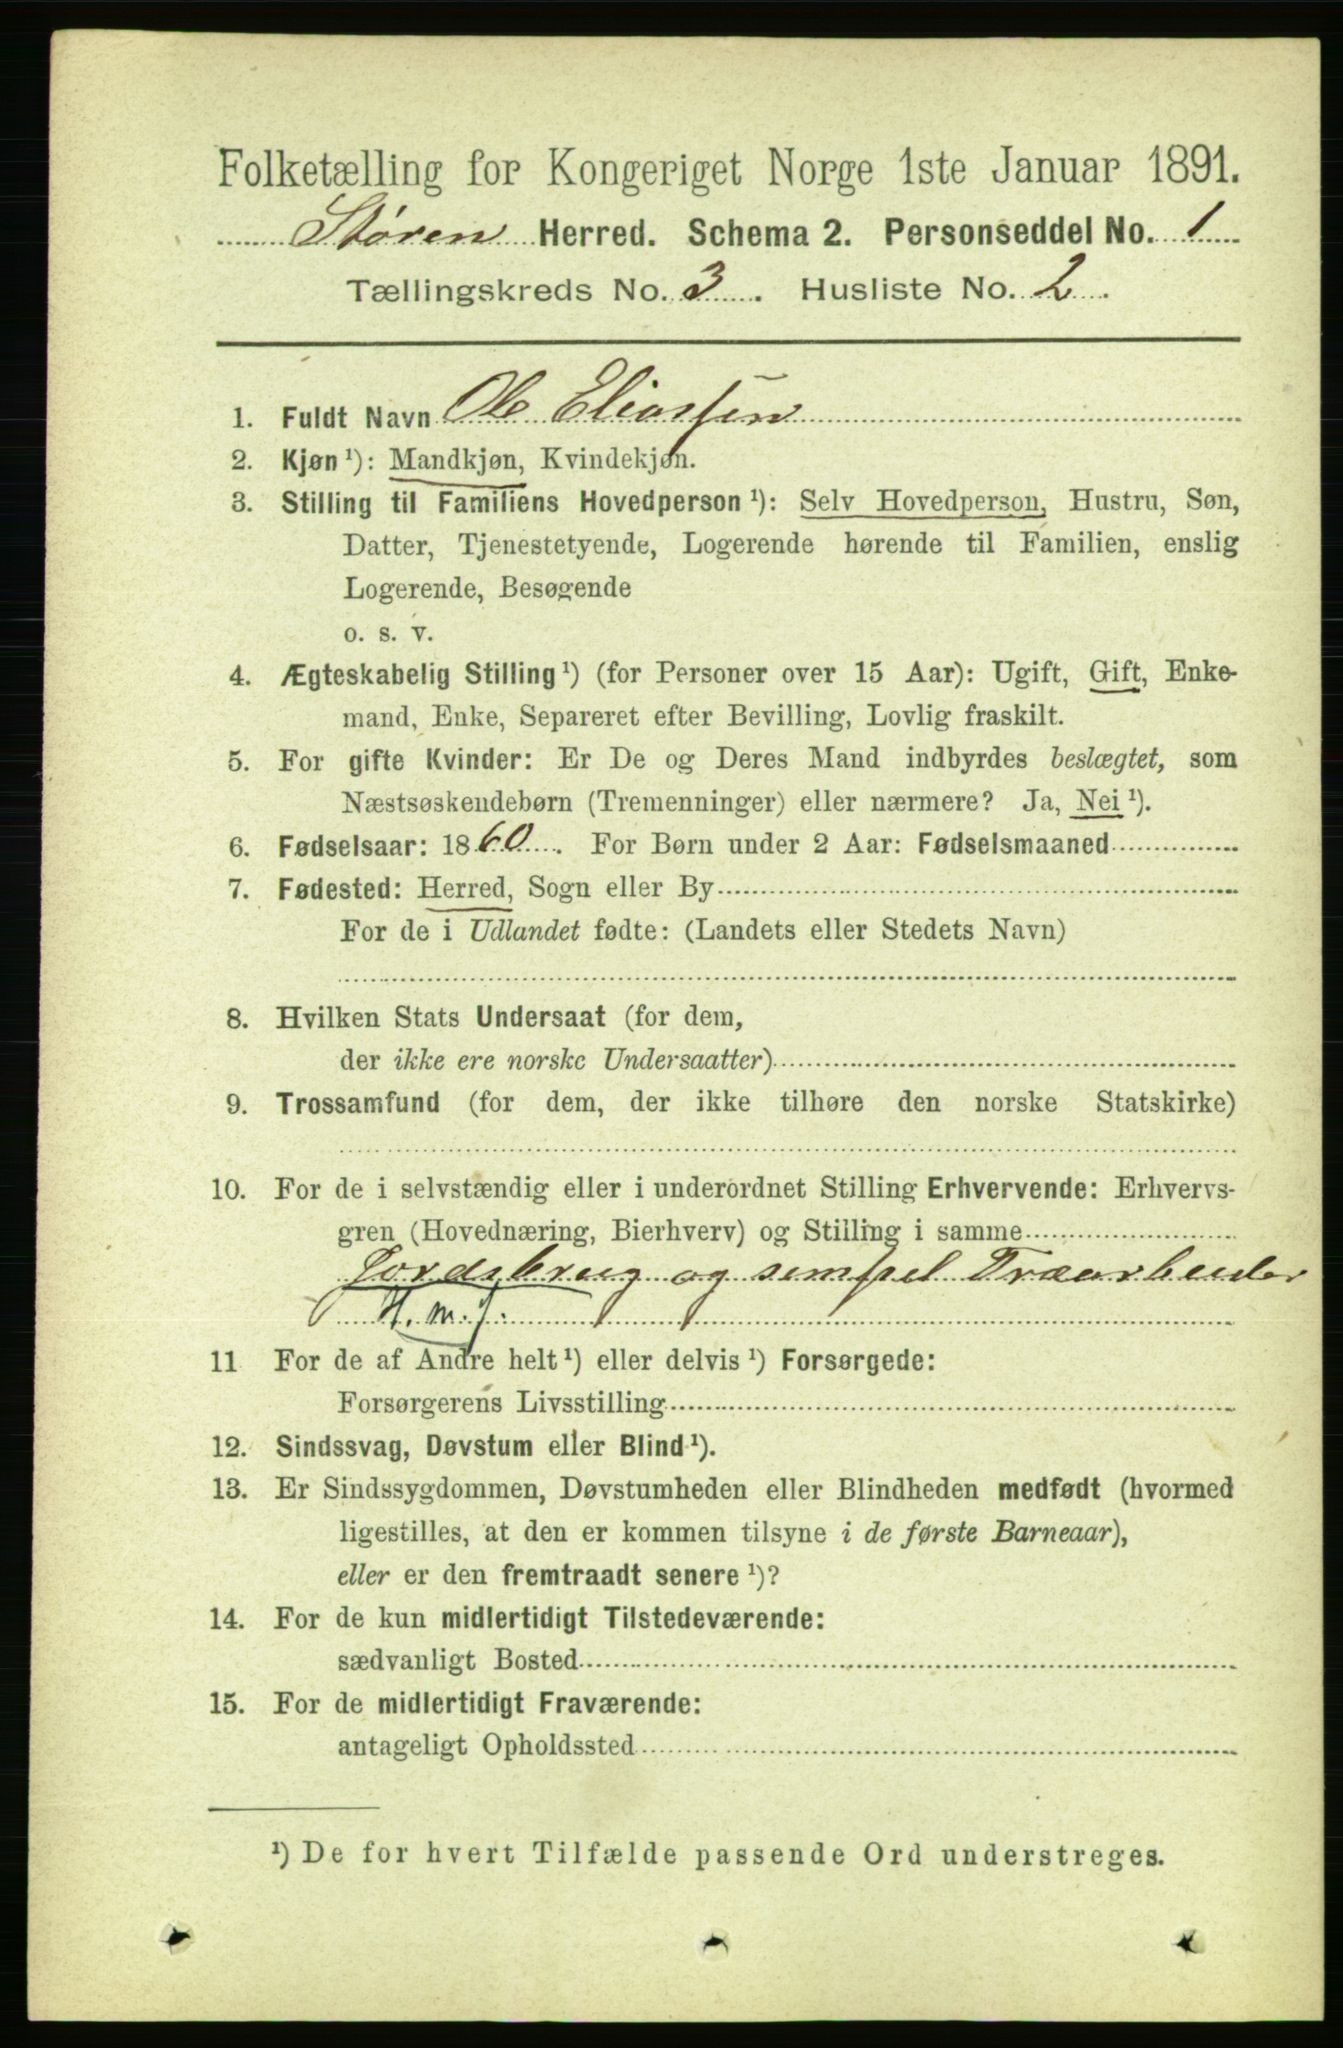 Folketælling for Kongeriget Norge 1ste Januar 1891.
Støren Herred. Schema 2. Personseddel No. 1
Tællingskreds No. 3. Husliste No. 2.
1. Fuldt Navn Ole Eliassen
2. Kjøn ¹): Mandkjøn, Kvindekjøn.
3. Stilling til Familiens Hovedperson ¹): Selv Hovedperson, Hustru, Søn,
Datter, Tjenestetyende, Logerende hørende til Familien, enslig
Logerende, Besøgende
o. s. v.
4. Ægteskabelig Stilling ¹) (for Personer over 15 Aar): Ugift, Gift, Enke-
mand, Enke, Separeret efter Bevilling, Lovlig fraskilt.
5. For gifte Kvinder: Er De og Deres Mand indbyrdes beslægtet, som
Næstsøskendebørn (Tremenninger) eller nærmere? Ja, Nei ¹).
6. Fødselsaar: 1860. For Børn under 2 Aar: Fødselsmaaned
7. Fødested: Herred, Sogn eller By
For de i Udlandet fødte: (Landets eller Stedets Navn)
8. Hvilken Stats Undersaat (for dem,
der ikke ere norske Undersaatter)
9. Trossamfund (for dem, der ikke tilhøre den norske Statskirke)
10. For de i selvstændig eller i underordnet Stilling Erhvervende: Erhvervs-
gren (Hovednæring, Bierhverv) og Stilling i samme
Jordsbrug og simpel Træarbeider
H. m. J.
11 For de af Andre helt ¹) eller delvis ¹) Forsørgede:
Forsørgerens Livsstilling
12. Sindssvag, Døvstum eller Blind ¹).
13. Er Sindssygdommen, Døvstumheden eller Blindheden medfødt (hvormed
ligestilles, at den er kommen tilsyne i de første Barneaar),
eller er den fremtraadt senere ¹)?
14. For de kun midlertidigt Tilstedeværende:
sædvanligt Bosted
15. For de midlertidigt Fraværende:
antageligt Opholdssted
¹) De for hvert Tilfælde passende Ord understreges.